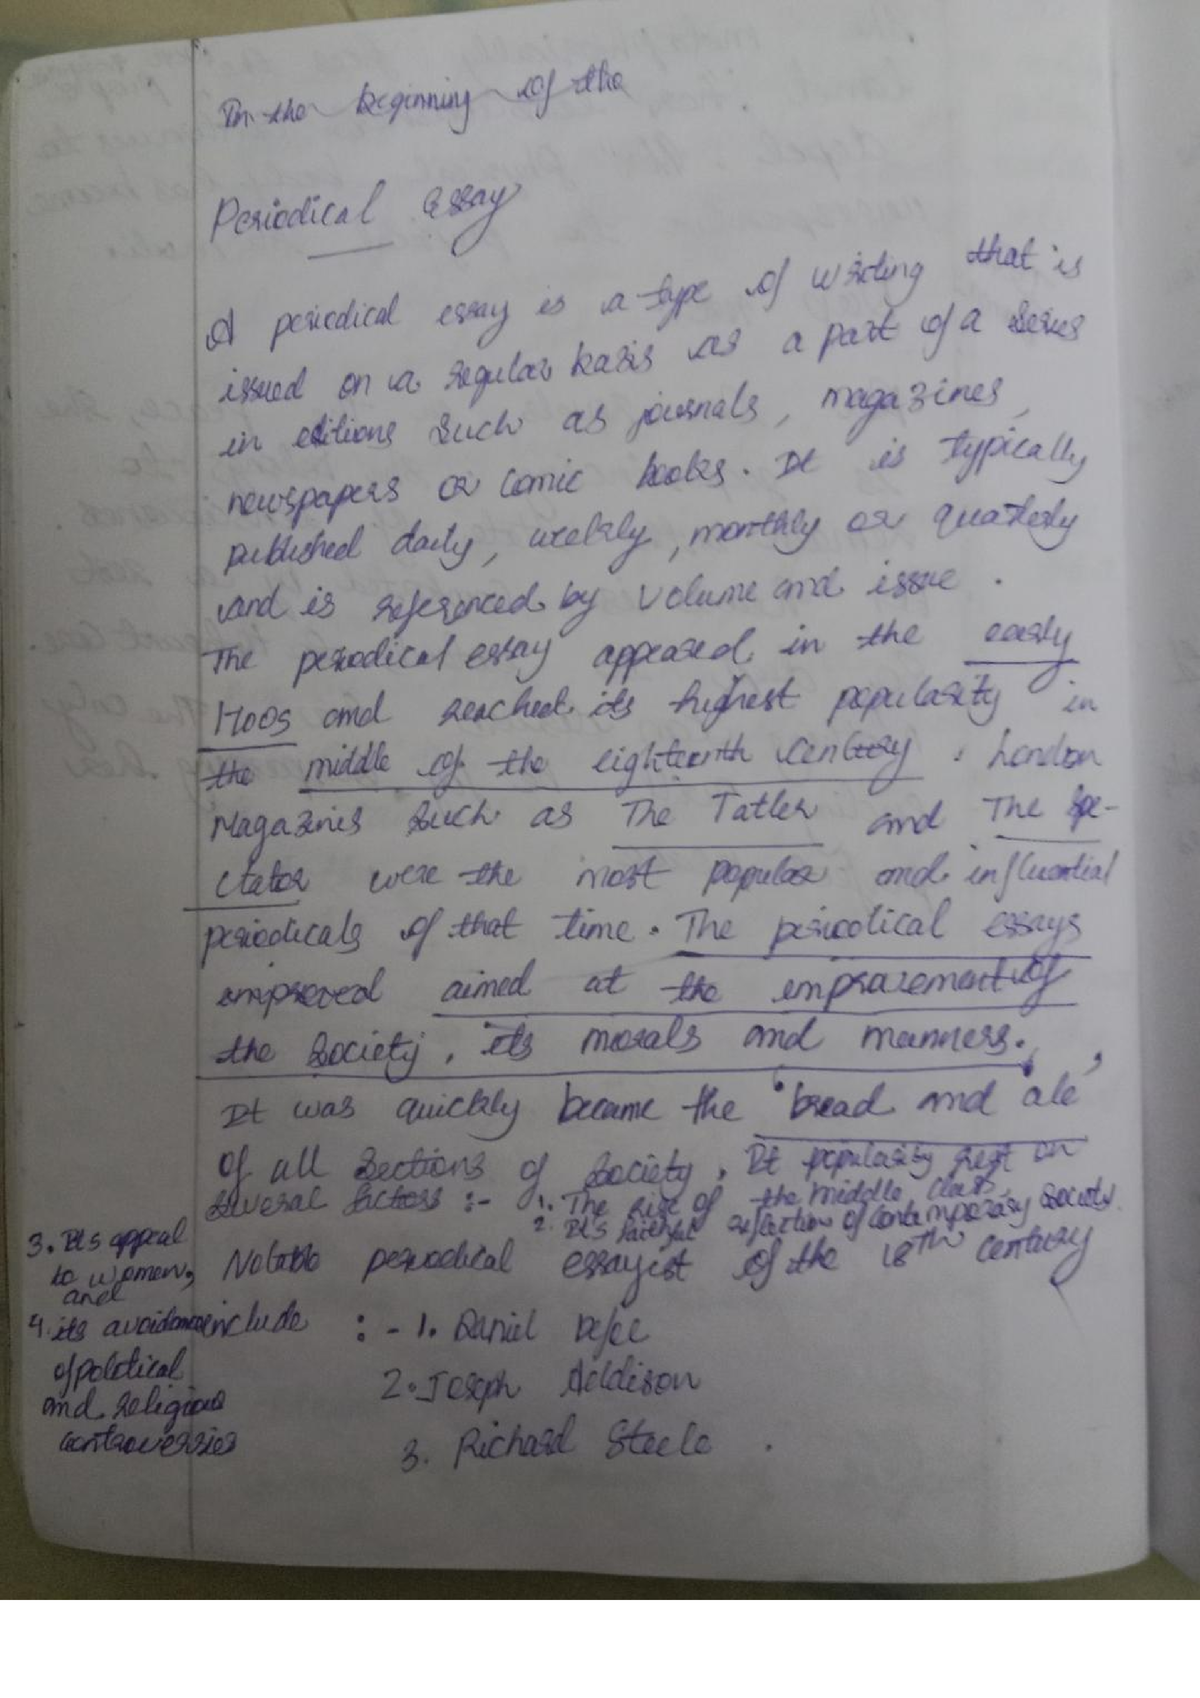 In the beginning of the
Periodical essay
A periodical essay is a type of writing that is
issued on a regular basis as a part of a series
in editions such as journals, magazines,
newspapers or comic books. It is typically
published daily, weekly, monthly or quaterly
and is referenced by volume and issue.
The periodical essay appeared in the early
1700s and reached its highest popularity in
the middle of the eighteenth century. London
Magazines such as The Tatler and The Spe-
ctator were the most popular and influential
periodicals of that time. The periodical essays
improved aimed at the improvement of
the society, its morals and manners.
It was quickly became the 'bread and ale'
of all sections of society. It popularity rest on
several factors :- 1. The rise of the middle class,
2. Its faithful reflection of contemporary society.
3. Its appeal
to women,
and
4. its avoidance
of political
and religious
controversies
Notable periodical essayist of the 18th century
include :- 1. Daniel Defoe
2. Joseph Addison
3. Richard Steele.